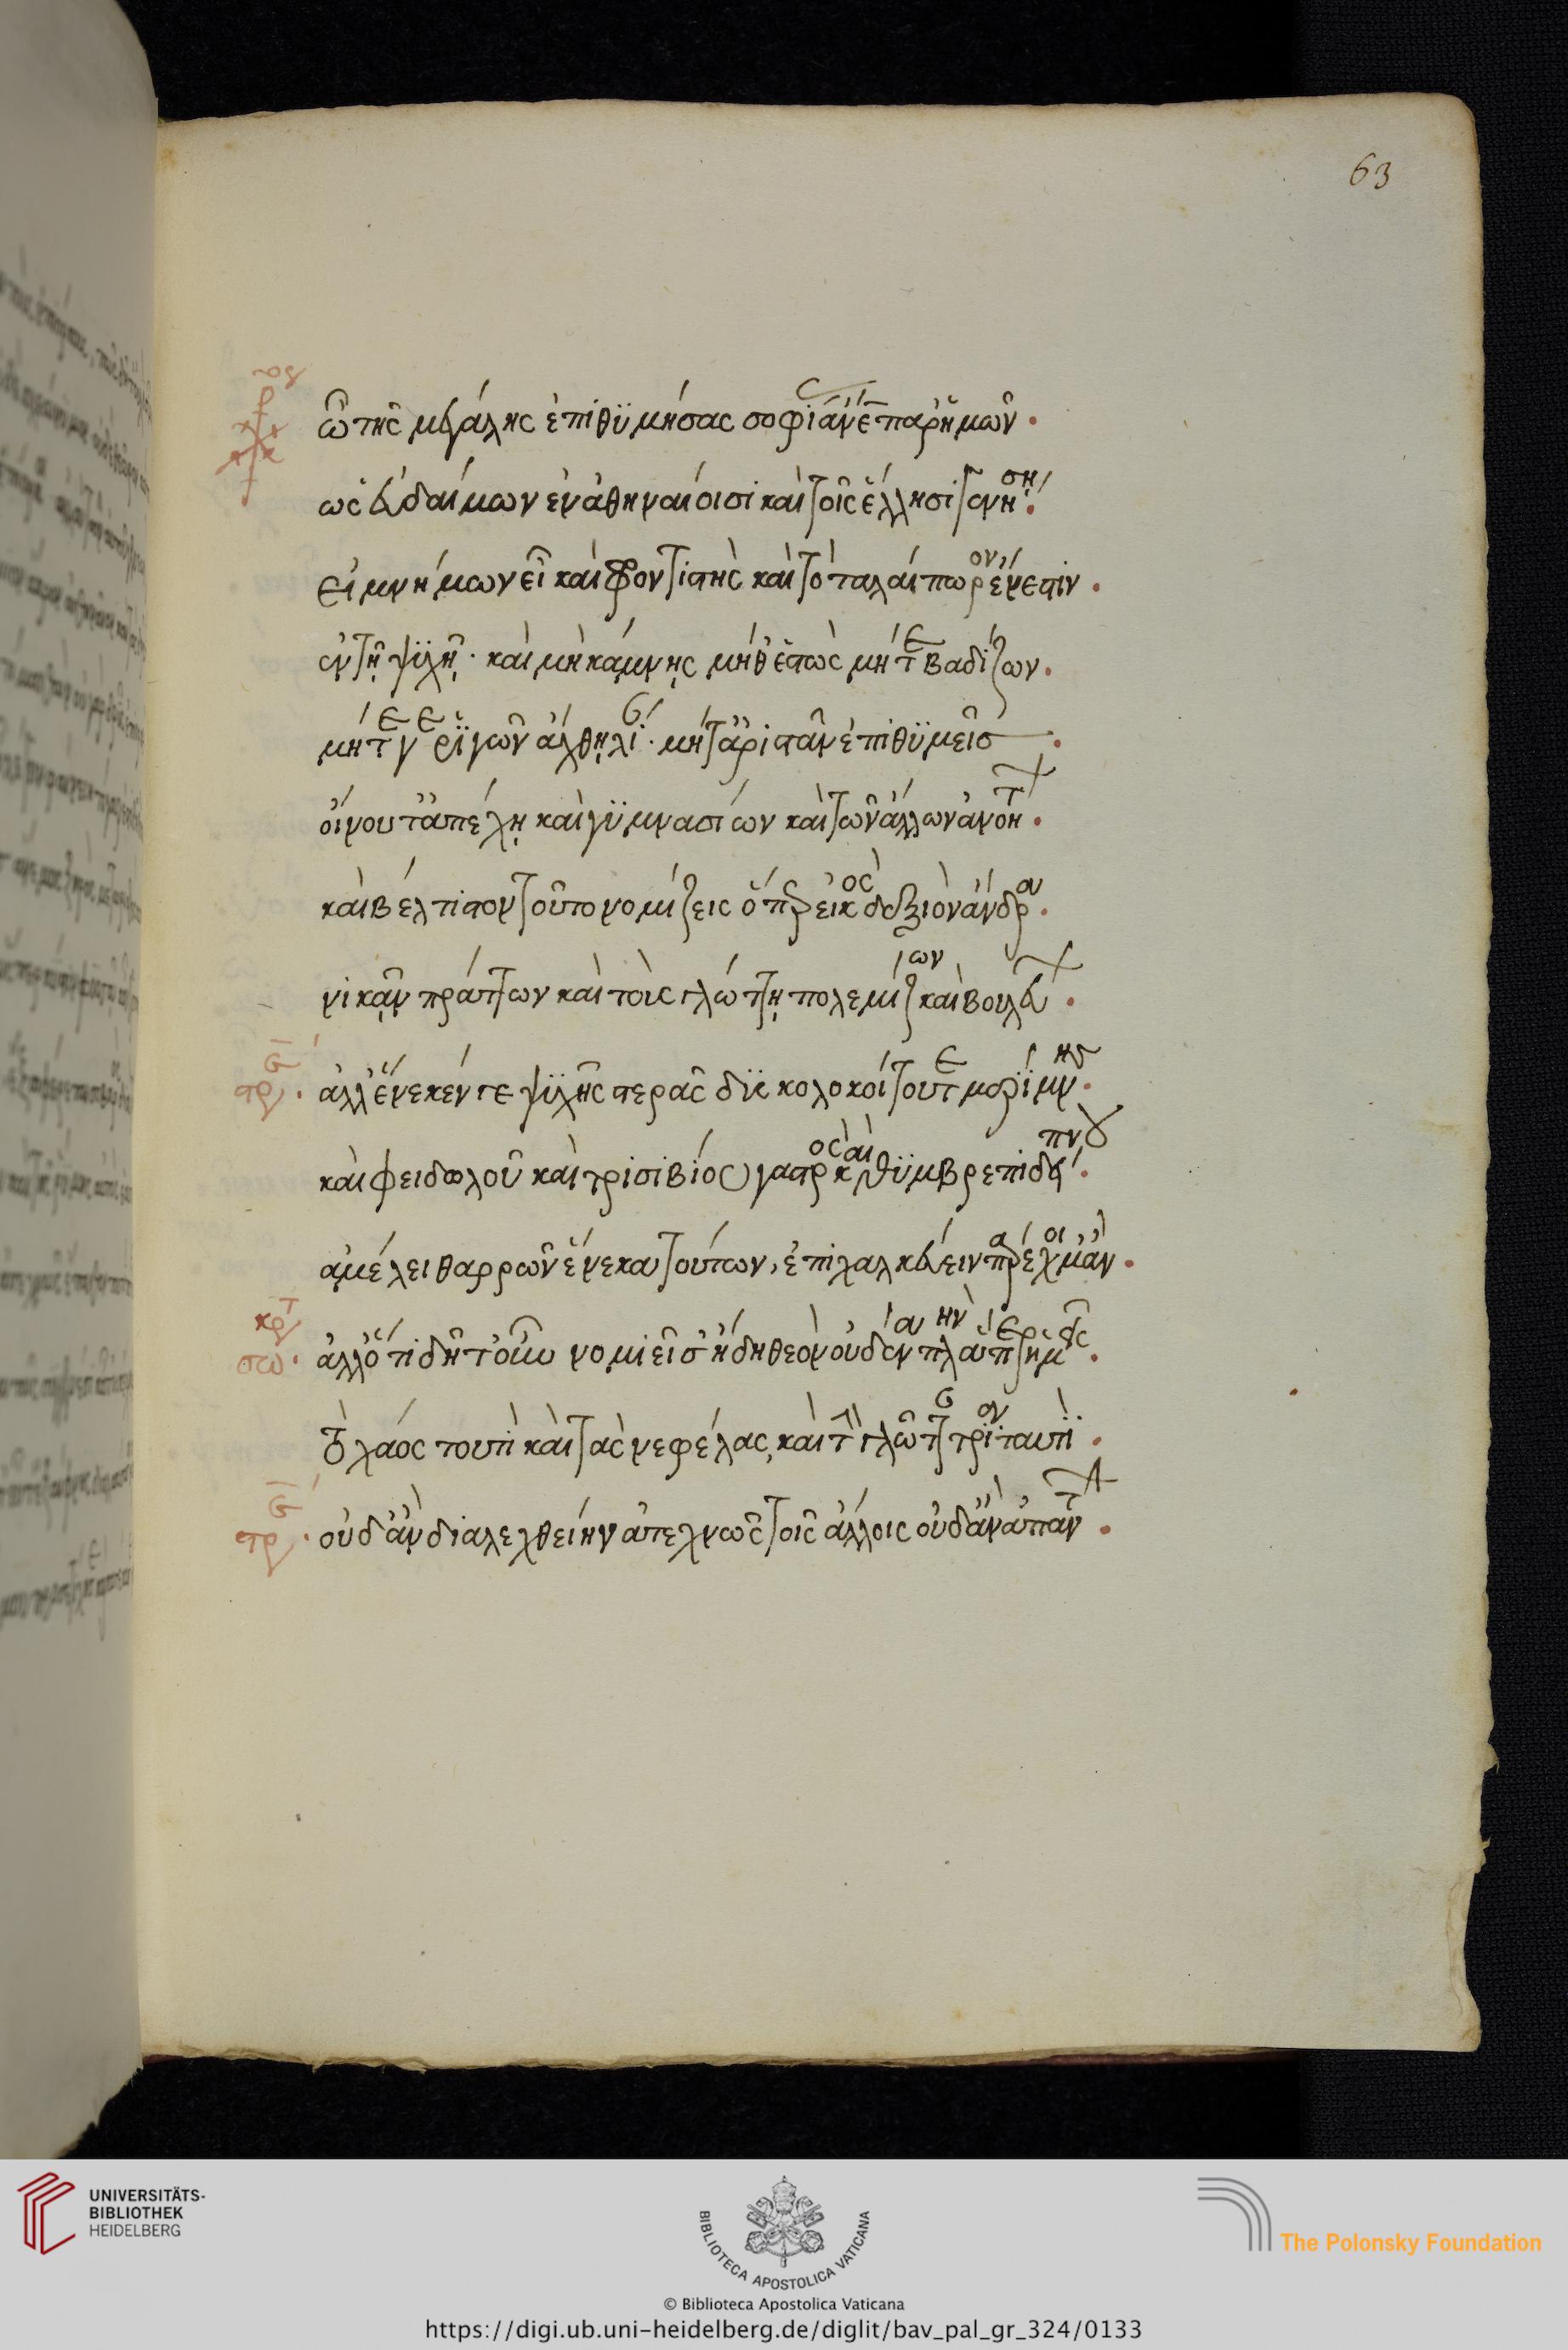 63
χορ
ὦ τῆς μεγάλης ἐπιθυμήσας σοφίας ἄνε παρ' ἡμῶν.
ὡς εὐδαίμων ἐν ἀθηναίοισι καὶ τοῖς ἕλλησι γενήση.
εἰ μνήμων εἶ καὶ φροντιστὴς καὶ τὸ ταλαίπωρον ἔνεστιν.
ἐν τῇ ψυχῇ. καὶ μὴ κάμνῃς μήθ' ἑστὼς μήτε βαδίζων.
μήτε γε ῥιγῶν ἄχθῃ λίαν. μήτ' ἀριστᾶν ἐπιθυμεῖς.
οἴνου τ' ἀπέχῃ καὶ γυμνασίων καὶ τῶν ἄλλων ἀνοήτων.
καὶ βέλτιστον τοῦτο νομίζεις ὅπερ εἰκὸς δεξιὸν ἄνδρα.
νικᾶν πράττων καὶ τοῖς γλώττῃ πολεμίζων καὶ βουλεύων.
στρ. ἀλλ' ἕνεκέν γε ψυχῆς στερᾶς δυσκολοκοίτου τε μερίμνης.
καὶ φειδωλοῦ καὶ τρισιβίου γαστρὸς καὶ θυμβρεπιδείπνου.
ἀμέλει θαρρῶν ἕνεκα τούτων, ἐπιχαλκεύειν παρέχοιμ' ἄν.
σω. ἀλλό τι δῆτ' οὖν νομιεῖς ἤδη θεὸν οὐδένα πλὴν ἅπερ ἡμεῖς.
τὸ χάος τουτὶ καὶ τὰς νεφέλας, καὶ τὴν γλῶτταν τρία ταυτί.
στρ. οὐδ' ἂν διαλεχθείην ἀτεχνῶς τοῖς ἄλλοις οὐδ' ἂν ἀπαντῶν.
UNIVERSITÄTS-
BIBLIOTHEK
HEIDELBERG
BIBLIOTECA APOSTOLICA VATICANA
The Polonsky Foundation
© Biblioteca Apostolica Vaticana
https://digi.ub.uni-heidelberg.de/diglit/bav_pal_gr_324/0133